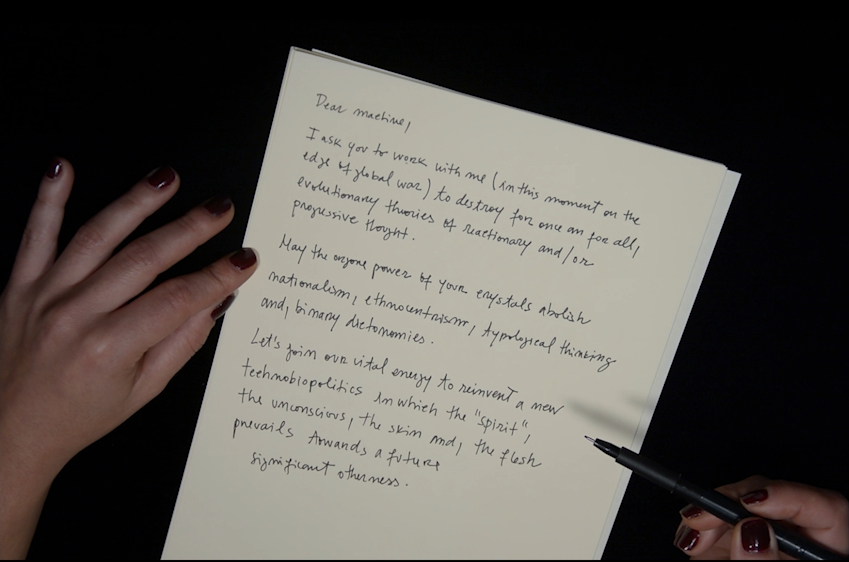 Dear machine,
I ask you to work with me (in this moment on the
edge of global war) to destroy for once an for all,
evolutionary theories of reactionary and/or
progressive thought.
May the orgone power of your crystals abolish
nationalism, ethnocentrism, typological thinking
and, binary dictonomies.
Let's join our vital energy to reinvent a new
technobiopolitics in which the "spirit",
the unconscious, the skin and, the flesh
prevails towards a future
significant otherness.